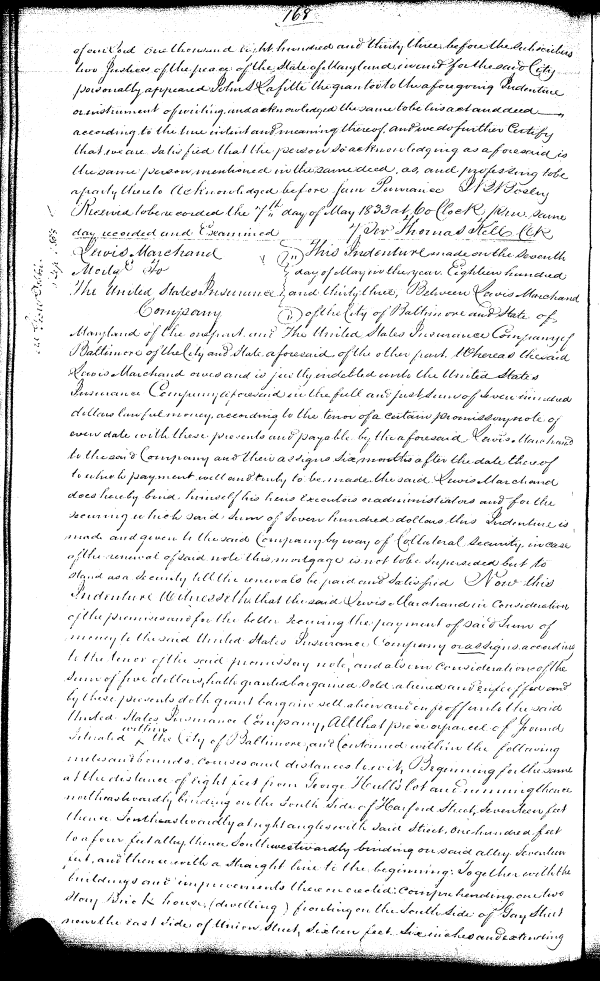 168
of our Lord one thousand eight hundred and thirty three before the Subscribers
two Justices of the peace of the State of Maryland in and for the said City
personally appeared John S Lafitte the grantor to the aforegoing Indenture
or instrument of writing and acknowledged the same to be his act and deed
according to the true intent and meaning thereof and we do further Certify
that we are satisfied that the person so acknowledging as aforesaid is
the same person mentioned in the same deed, as, and professing to be
a party thereto Acknowledged before
Received to be recorded the 7th day of May 1833 at 6 o Clock P.M. same
day recorded and Examined Thomas Kell Clk
Lewis Marchand This Indenture made on the seventh
Mortge To day of May in the year Eighteen hundred
The United States Insurance and thirty three, Between Lewis Marchand
Company of the City of Baltimore and State of
Maryland of the one part and The United States Insurance Company of
Baltimore of the City and State aforesaid of the other part. Whereas the said
Lewis Marchand owes and is justly indebted unto the United States
Insurance Company aforesaid in the full and just sum of Seven hundred
dollars lawful money, according to the tenor of a certain promissory note of
even date with these presents and payable by the aforesaid Lewis Marchand
to the said Company and their assigns six months after the date thereof
to which payment well and truly to be made the said Lewis Marchand
does hereby bind himself his heirs Executors or administrators and for the
securing which said Sum of Seven hundred dollars this Indenture is
made and given to the said Company by way of Collateral Security, in case
of the renewal of said note this mortgage is not to be superseded but to
stand as a security till the renewals be paid and satisfied Now this
Indenture Witnesseth that the said Lewis Marchand in Consideration
of the premises and for the better securing the payment of said Sum of
money to the said United States Insurance Company or assigns, according
to the tenor of the said promissory note, and also in consideration of the
Sum of five dollars, hath granted bargained sold aliened and enfeoffed and
by these presents doth grant bargain sell alien and enfeoff unto the said
United States Insurance Company, All that piece or parcel of Ground
situated within the City of Baltimore, and Contained within the following
metes and bounds, courses and distances to wit, Beginning for the same
at the distance of eight feet from George Hull's lot and running thence
northeastwardly binding on the South Side of Harford Street, Seventeen feet
thence Southeastwardly at right angles with said Street, One hundred feet
to a four feet alley, thence Southwestwardly binding on said alley Seventeen
feet, and thence with a straight line to the beginning; Together with the
buildings and improvements thereon erected comprehending one two
Story Brick house (dwelling) fronting on the South Side of Gay Street
near the East Side of Union Street, Sixteen feet Six inches and extending